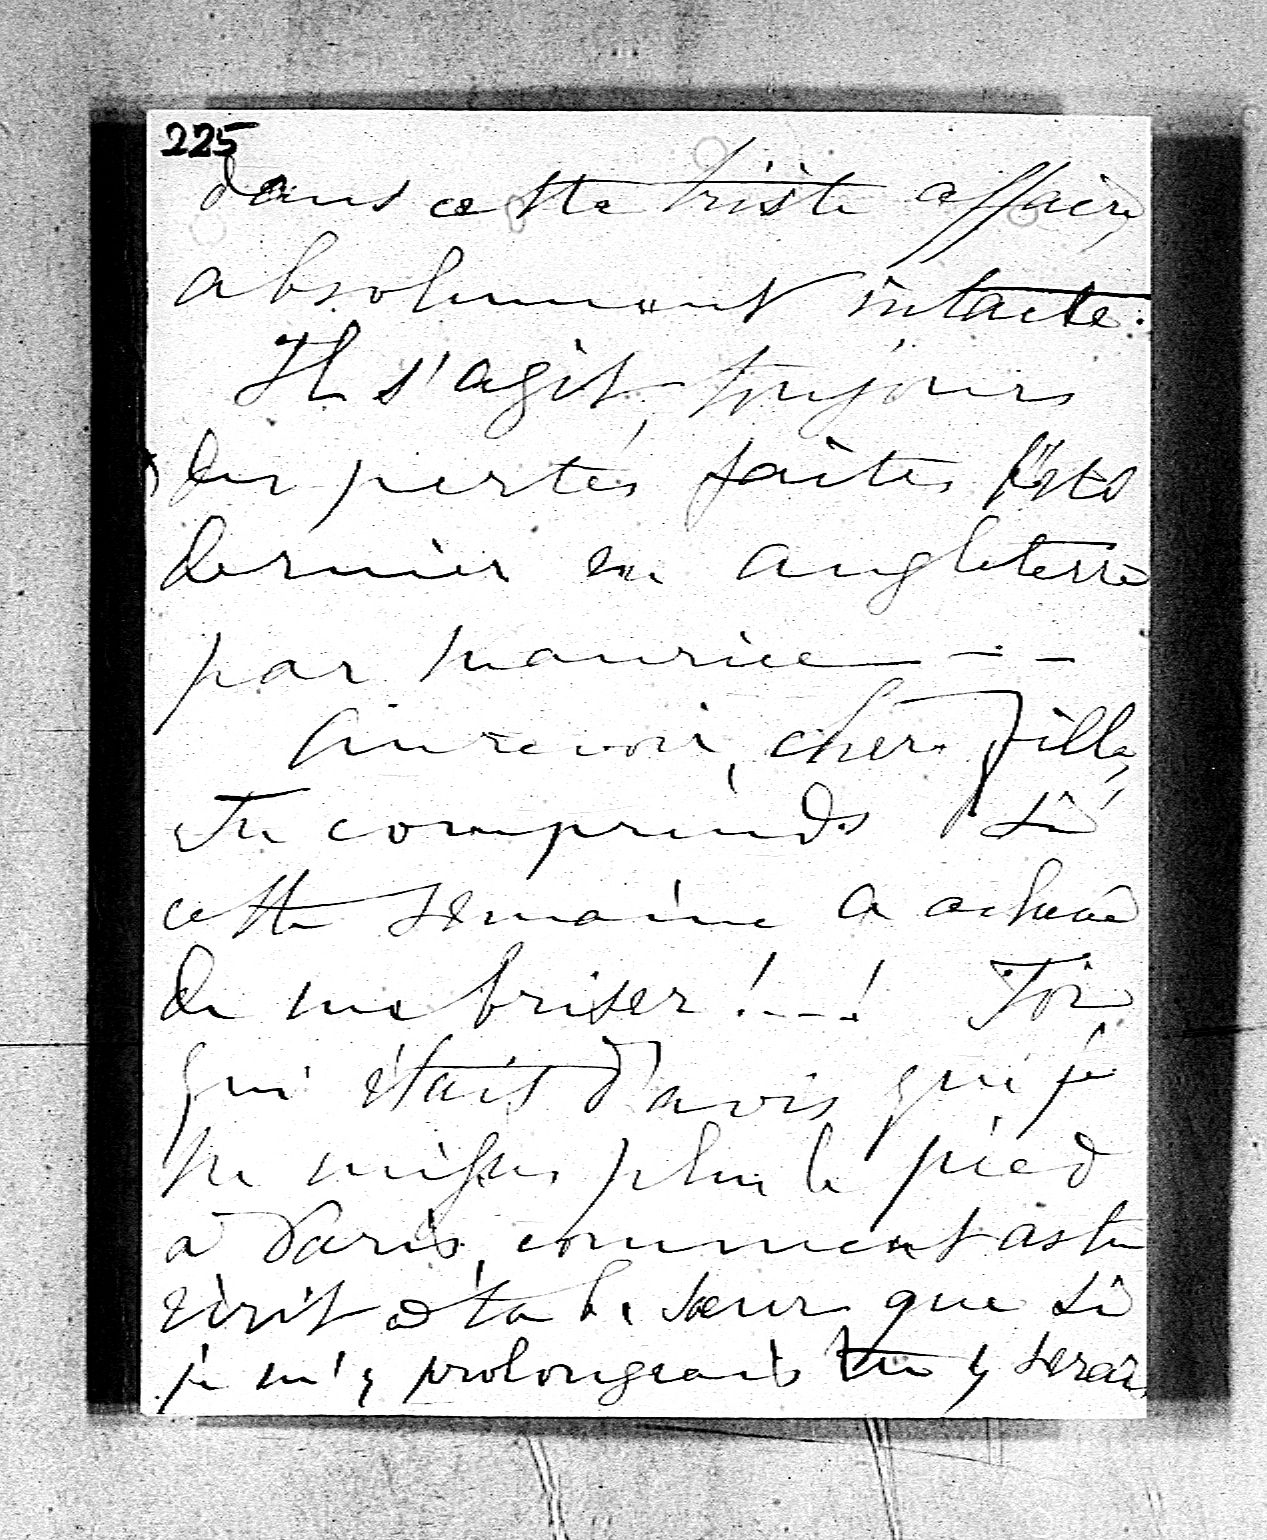 225
dans cette triste affaire,
absolument intacte.
Il s'agit, toujours
des pertes faites l'été
dernier en angleterre
par maurice - - -
Aurevoir, chère fille,
tu comprends si
cette semaine a achevé
de me briser ! -- ! Toi
qui était d'avis que je
ne misse plus le pied
à Paris, comment as tu
écrit à ta b. soeur que si
je m'y prolongeais tu y serais